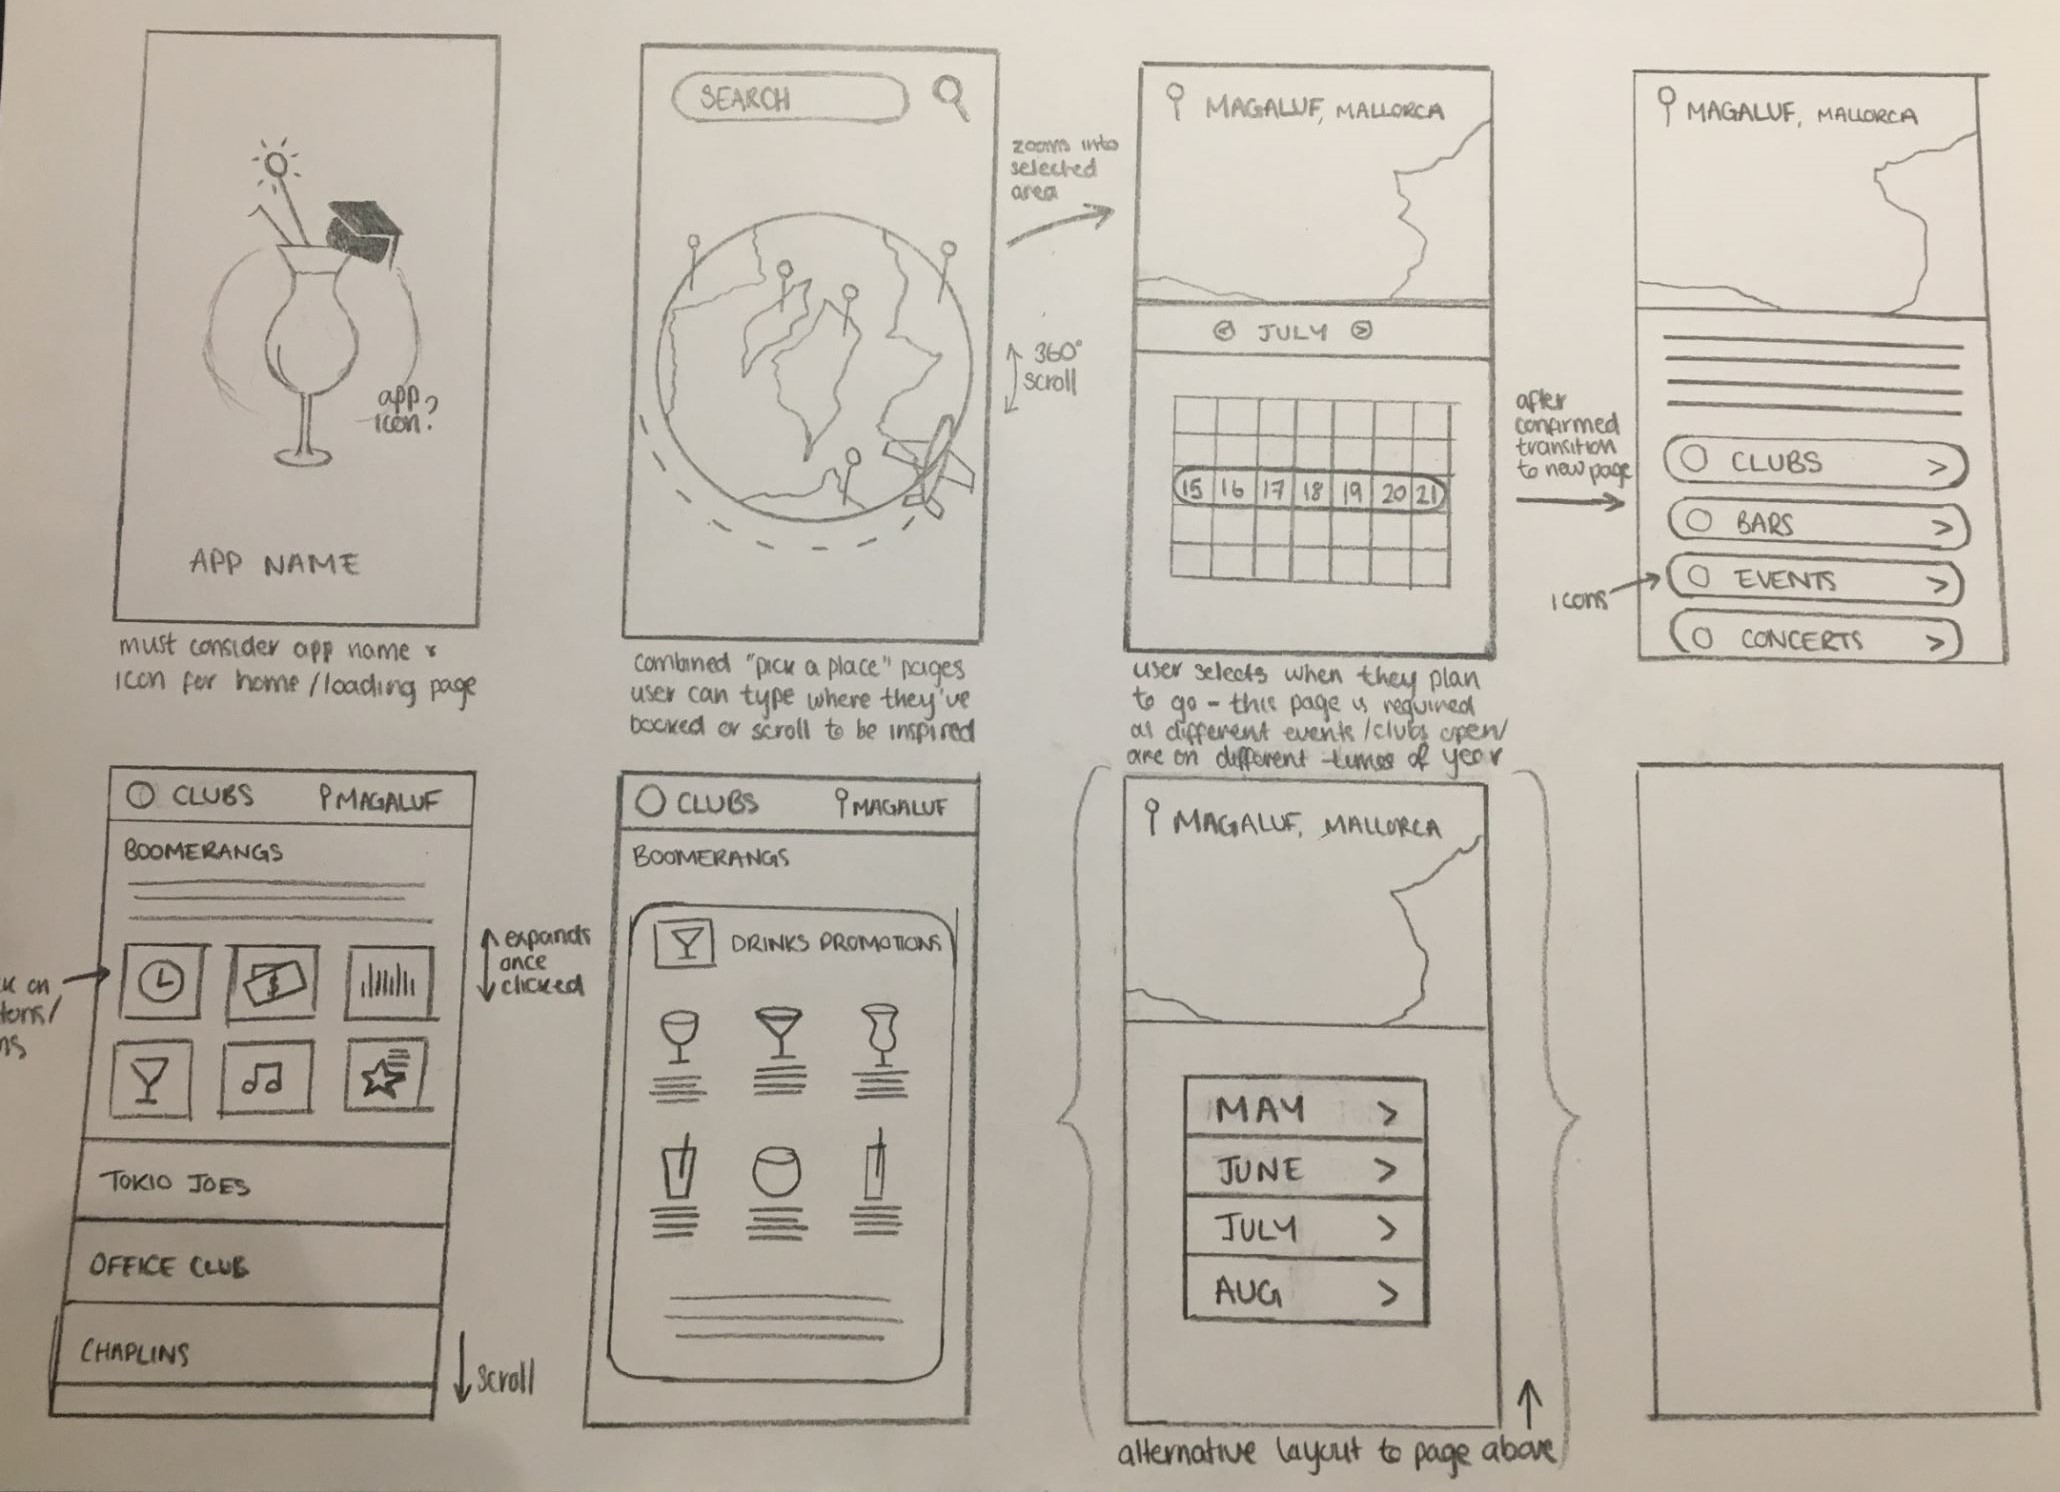 app
icon?
APP NAME
must consider app name &
icon for home/loading page
SEARCH
zooms into
selected
area
360°
scroll
combined "pick a place" pages
user can type where they've
booked or scroll to be inspired
MAGALUF, MALLORCA
JULY
15 16 17 18 19 20 21
user selects when they plan
to go - this page is required
as different events/clubs open/
are on different times of year
after
confirmed
transition
to new page
MAGALUF, MALLORCA
CLUBS >
BARS >
EVENTS >
CONCERTS >
icons
CLUBS MAGALUF
BOOMERANGS
on
$
TOKIO JOES
OFFICE CLUB
CHAPLINS
expands
once
clicked
scroll
CLUBS MAGALUF
BOOMERANGS
DRINKS PROMOTIONS
MAGALUF, MALLORCA
MAY >
JUNE >
JULY >
AUG >
alternative layout to page above